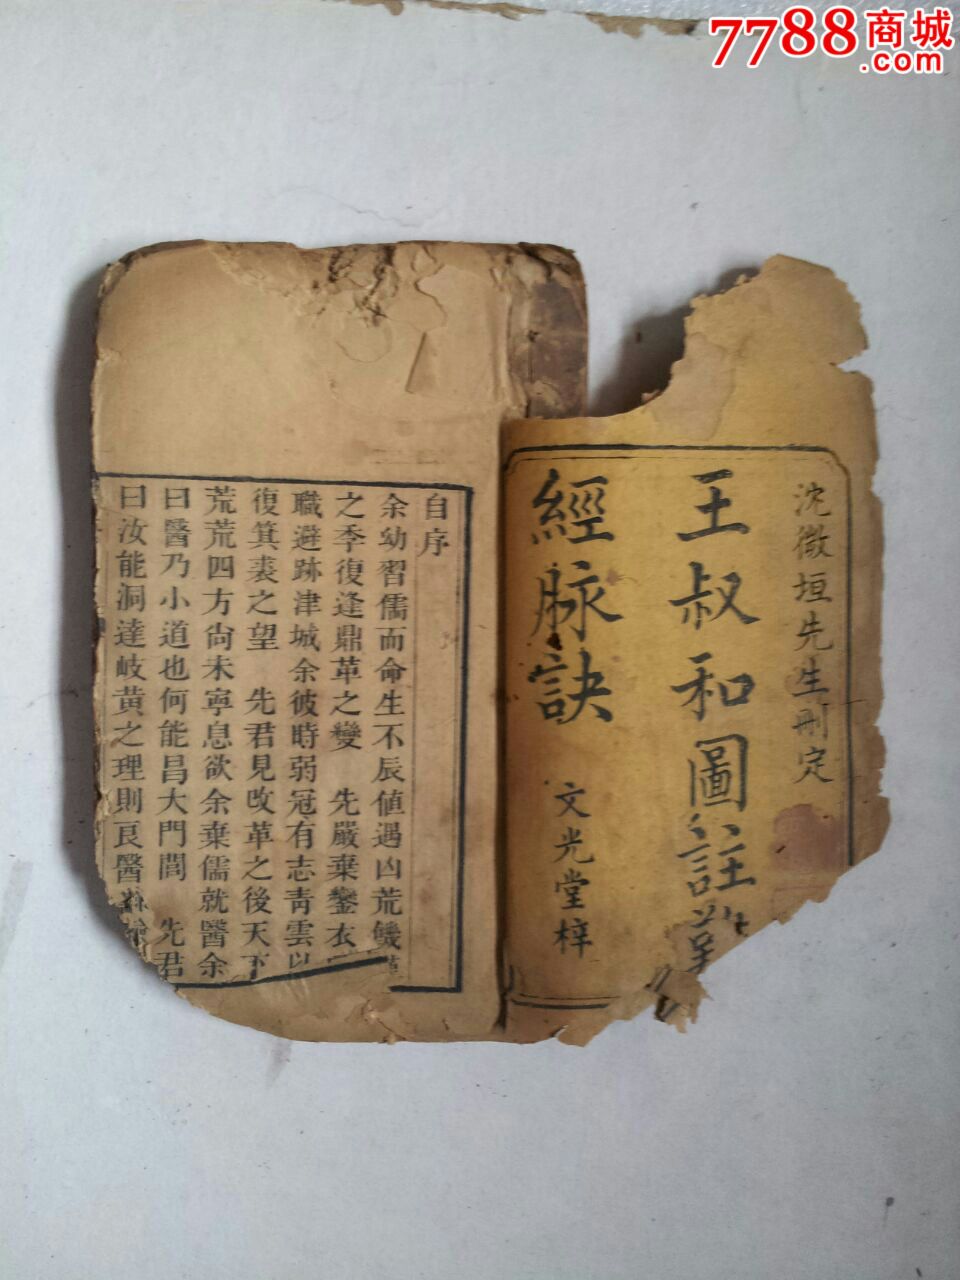 7788商城
.com
沈微垣先生刪定
王叔和圖註難
經脉訣
文光堂梓
自序
余幼習儒而命生不辰値遇凶荒饑
之季復逢鼎革之變　先嚴棄鑾衣
職避跡津城余彼時弱冠有志靑雲以
復箕裘之望　先君見改革之後天下
荒荒四方尙未寧息欲余棄儒就醫余
曰醫乃小道也何能昌大門閭　先君
曰汝能洞達岐黄之理則良醫